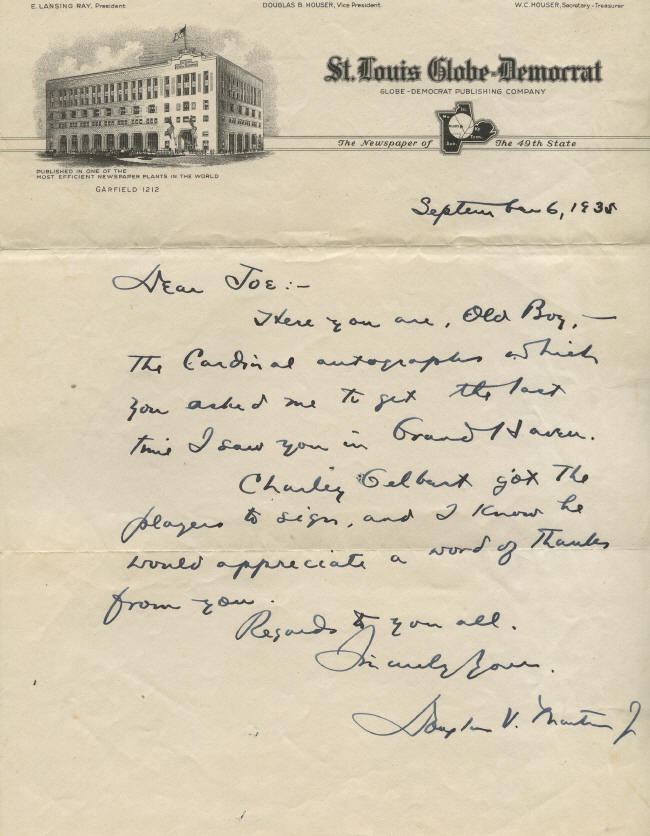 E. LANSING RAY, President DOUGLAS B. HOUSER, Vice President W.C. HOUSER, Secretary-Treasurer
St. Louis Globe-Democrat
GLOBE-DEMOCRAT PUBLISHING COMPANY
The Newspaper of The 49th State
PUBLISHED IN ONE OF THE
MOST EFFICIENT NEWSPAPER PLANTS IN THE WORLD
GARFIELD 1212
September 6, 1935
Dear Joe:-
Here you are, Old Boy,-
the Cardinal autographs which
you asked me to get the last
time I saw you in Grand Haven.
Charley Gelbert got the
players to sign, and I know he
would appreciate a word of thanks
from you.
Regards to you all.
Sincerely Yours.
Douglas V. Martin Jr